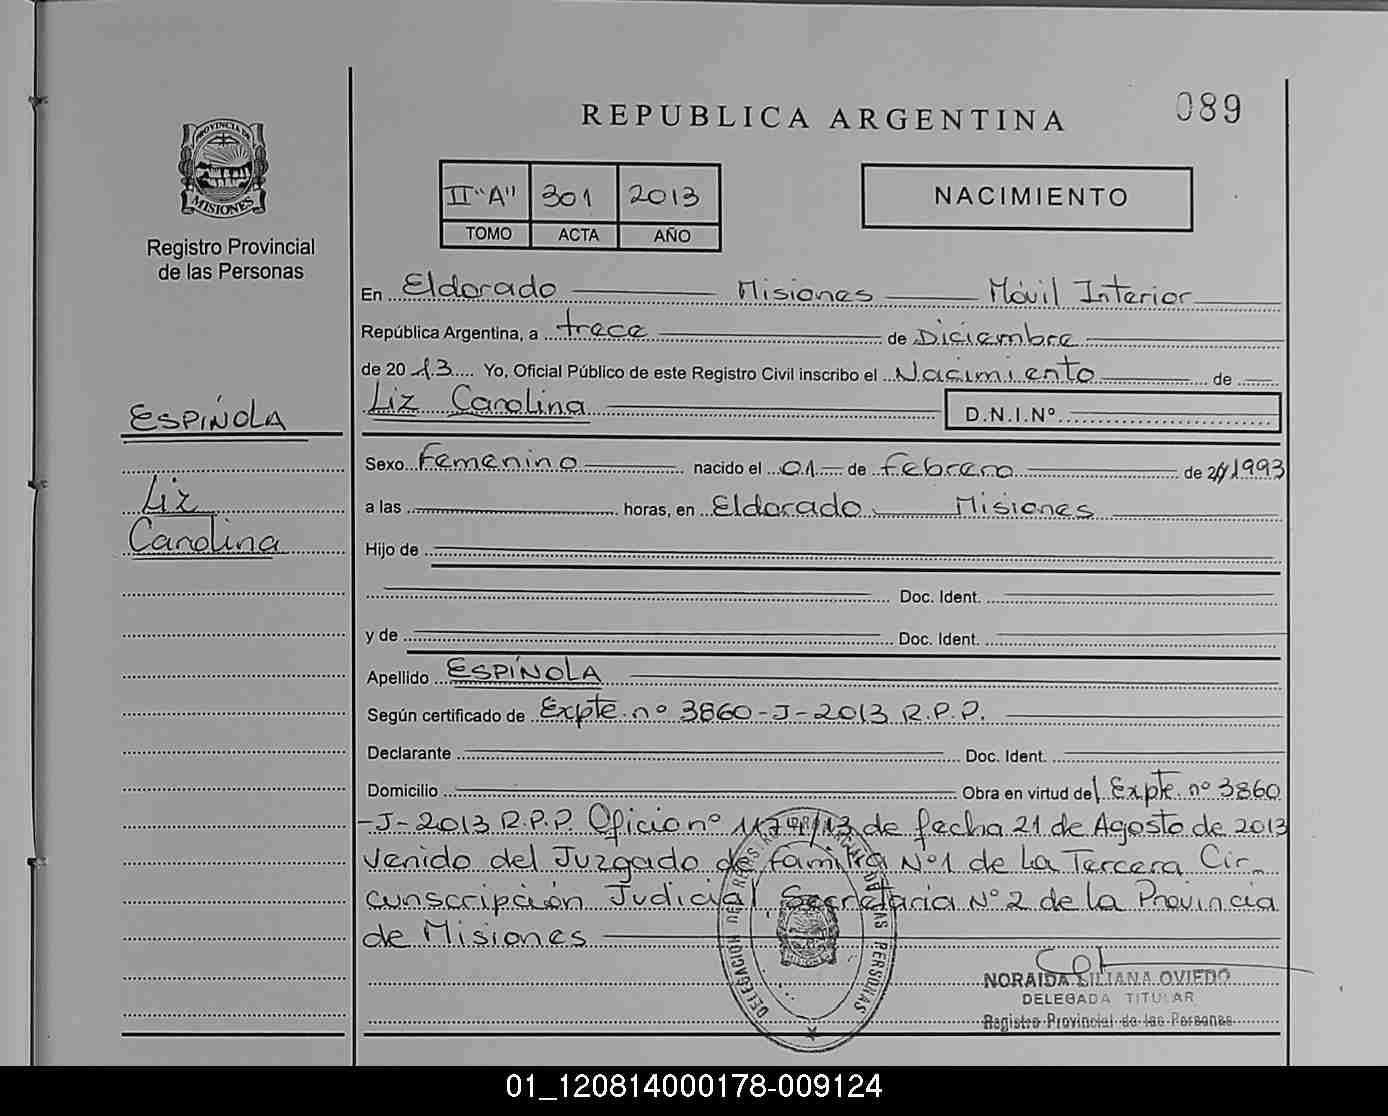 REPUBLICA ARGENTINA
089
PROVINCIA DE
MISIONES
Registro Provincial
de las Personas
II "A" 301 2013
TOMO ACTA AÑO
NACIMIENTO
En Eldorado Misiones Móvil Interior
República Argentina, a trece de Diciembre
de 2013 Yo, Oficial Público de este Registro Civil inscribo el Nacimiento de
Liz Carolina D.N.I.Nº
ESPÍNOLA
Liz
Carolina
Sexo Femenino nacido el 01 de febrero de 1993
a las horas, en Eldorado Misiones
Hijo de
Doc. Ident.
y de Doc. Ident.
Apellido ESPÍNOLA
Según certificado de Expte. nº 3860-J-2013 R.P.P.
Declarante Doc. Ident.
Domicilio Obra en virtud del Expte. nº 3860
-J-2013 R.P.P. Oficio nº de fecha 21 de Agosto de 2013
venido del Juzgado de familia Nº1 de La Tercera Cir_
cunscripción Judicial Secretaria Nº 2 de la Provincia
de Misiones
DELEGACION DEL REGISTRO PROVINCIAL DE LAS PERSONAS
NORAIDA LILIANA OVIEDO
DELEGADA TITULAR
Registro Provincial de las Personas
01_120814000178-009124